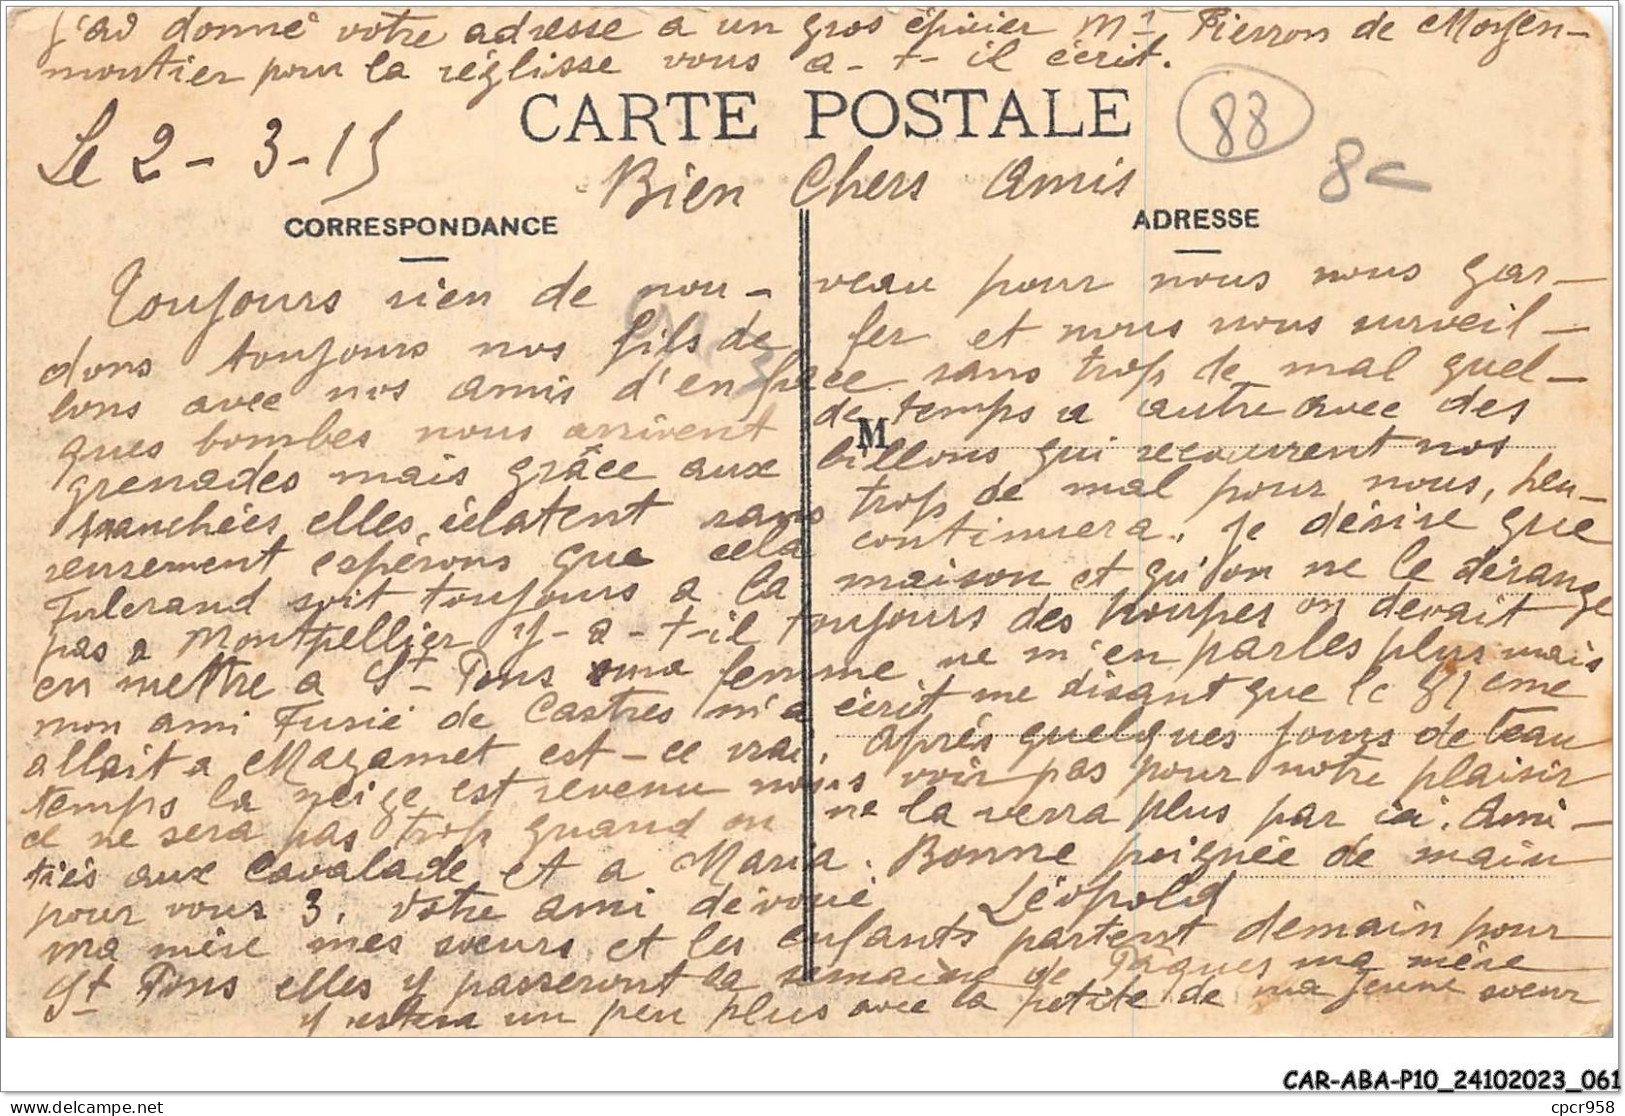 J'ai donné votre adresse a un gros épicier Mr Pierron de Moyen-
moutier pour la réglisse vous a-t-il écrit.
CARTE POSTALE
88
8c
Le 2-3-15
Bien Chers Amis
CORRESPONDANCE
ADRESSE
Toujours rien de nou-veau pour nous nous gar-
dons toujours nos fils de fer et nous nous surveil-
lons avec nos amis d'en face sans trop de mal quel-
ques bombes nous arrivent de temps a autre avec des
M
grenades mais grâce aux billons qui recouvrent nos
tranchées elles éclatent sans trop de mal pour nous, heu-
reusement espérons que cela continuera. Je désire que
Fulcrand soit toujours a la maison et qu'on ne le dérange
pas a Montpellier y-a-t-il toujours des houpes on devait
en mettre a St Pons ma femme ne m'en parles plus mais
mon ami Fusié de Castres m'a écrit me disant que le 81eme
allait a Mazamet est-ce vrai. Après quelques jours de beau
temps la neige est revenu nous voir pas pour notre plaisir
ce ne sera pas trop quand on ne la verra plus par ici. Ami-
tiés aux Cavalade et a Maria. Bonne poignée de main
pour vous 3. Votre ami dévoué Léopold
ma mère mes sœurs et les enfants partent demain pour
St Pons elles y passeront la semaine de Pâques ma mère
y restera un peu plus avec la petite de ma jeune sœur
CAR-ABA-P10_24102023_061
delcampe.net
cpcr958